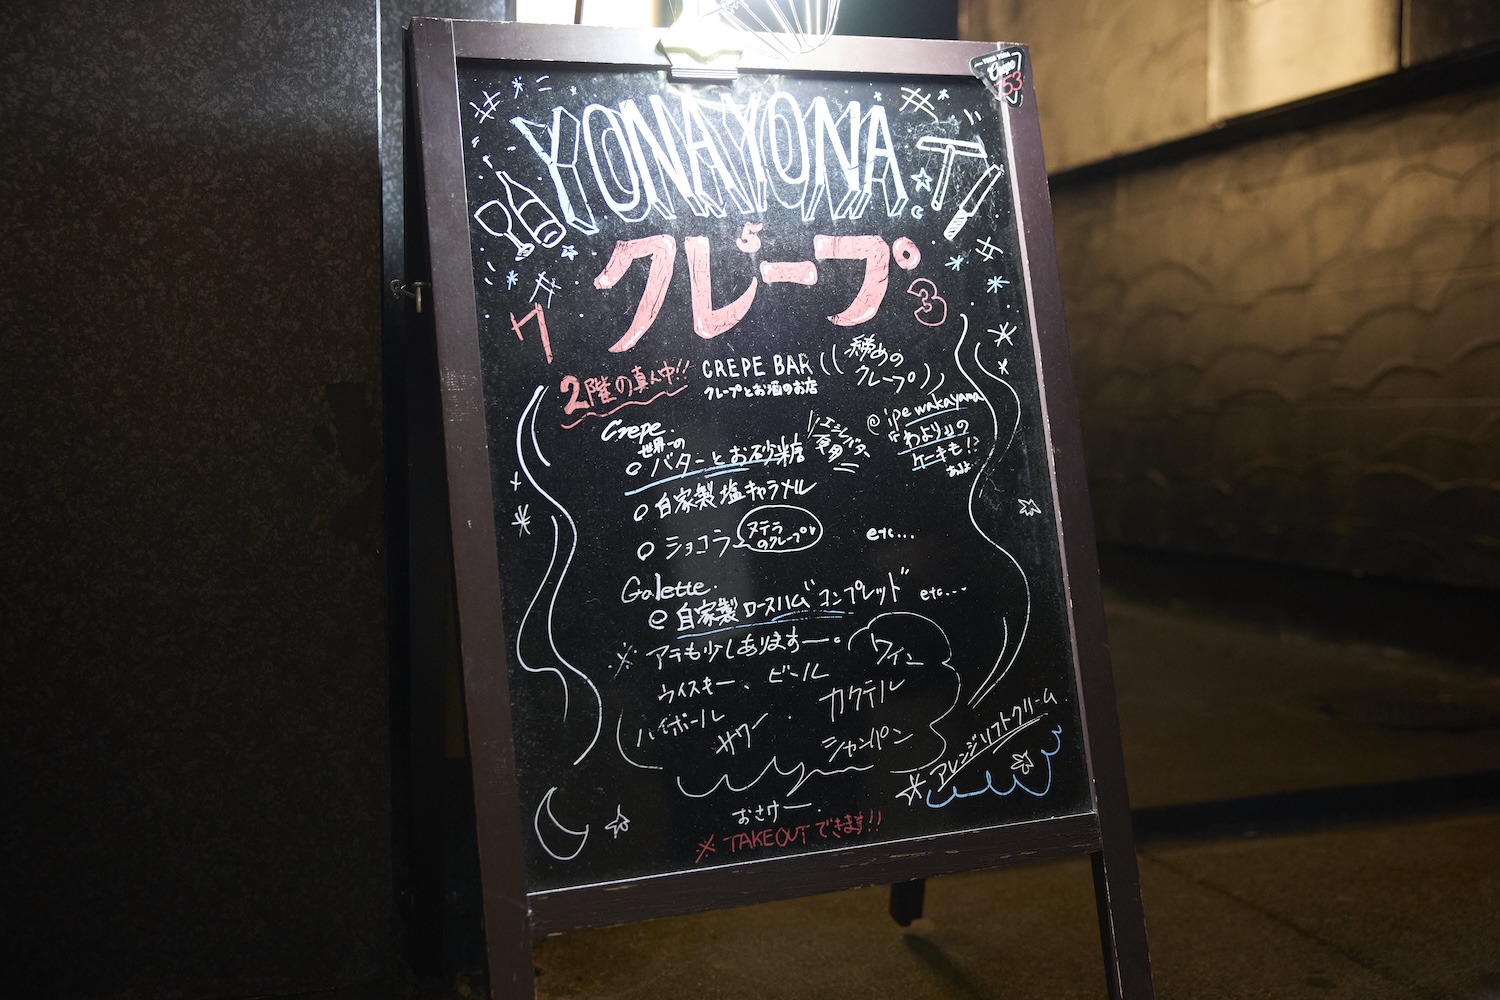 Crêpe
753
YONAYONA
クレープ
7 5 3
2階の真ん中!!
CREPE BAR
クレープとお酒のお店
締めの
クレープ
Crepe.
世界一の
バターとお砂糖
エシレバター
使用
自家製塩キャラメル
ショコラ
ヌテラ
のクレープ
etc...
@ipewakayama
「わより」の
ケーキも!?
あるよ
Galette.
自家製ロースハム コンプレッド etc...
※アテも少しありますー。
ワイン
ウイスキー、ビール
カクテル
ハイボール
サワー
シャンパン
おさけー.
アレンジソフトクリーム
※ TAKEOUTできます!!